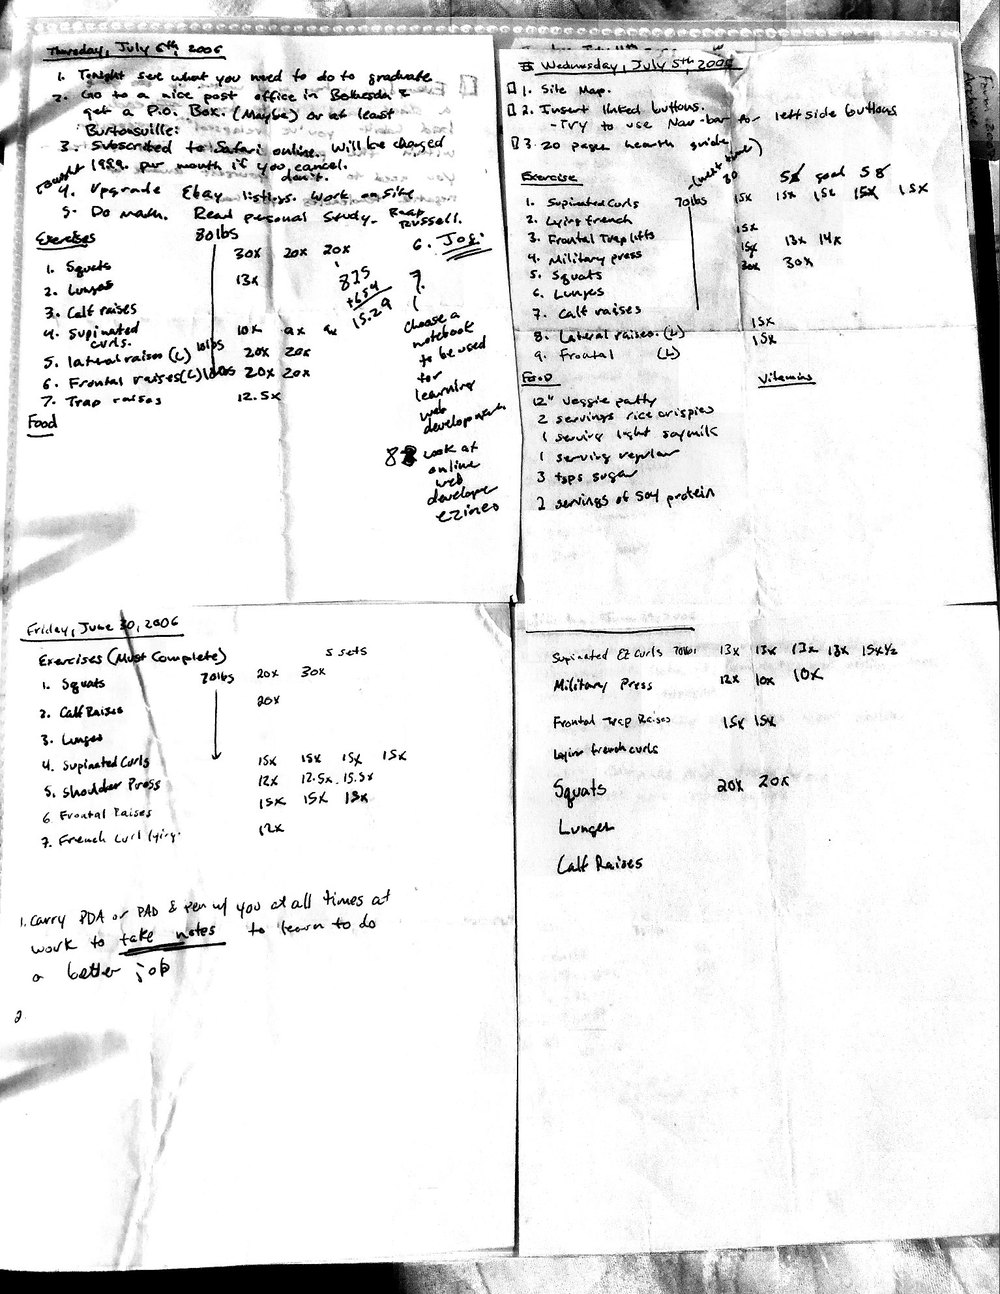 Thursday, July 6th, 2006
1. Tonight see what you need to do to graduate
2. Go to a nice post office in Bethesda &
get a P.O. Box. (Maybe) or at least
Burtonsville.
3. Subscribed to Safari online. Will be charged
1999. per month if you cancel.
don't.
4. Upgrade Ebay listings. Work on site
5. Do math. Read personal study. Read
Russell.
6. Jog.
Exercises
80lbs
1. Squats 30x 20x 20x
2. Lunges 13x
3. Calf raises
4. Supinated curls. 10x 9x 9x
5. lateral raises (L) 10lbs 20x 20x
6. Frontal raises (L) 10lbs 20x 20x
7. Trap raises 12.5x
Food
875
+654
15.29
7.
Choose a
notebook
to be used
for
learning
web
development
8 Look at
online
web
developer
ezines
Wednesday, July 5th, 2006
1. Site Map.
2. Insert linked buttons.
- Try to use Nav-bar for left side buttons
3. 20 pages health guide
(next time)
80
58 goal 58
Exercise
1. Supinated Curls 70lbs 15x 15x 15x 15x 15x
2. Lying french 15x
3. Frontal Trap lifts
4. Military press 15x 13x 14x
5. Squats 30x 30x
6. Lunges
7. Calf raises
8. Lateral raises. (L) 15x
9. Frontal (L) 15x
Food
Vitamins
12" veggie patty
2 servings rice crispies
1 serving light soymilk
1 serving regular
3 tsps sugar
2 servings of soy protein
Friday, June 30, 2006
Exercises (Must Complete) 5 sets
1. Squats 70lbs 20x 30x
2. Calf Raises 20x
3. Lunges
4. Supinated Curls 15x 15x 15x 15x
5. Shoulder Press 12x 12.5x 15.5x
6 Frontal Raises 15x 15x 13x
7. French Curl lying. 12x
1. Carry PDA or PAD & pen w/ you at all times at
work to take notes to learn to do
a better job
2.
Supinated EZ Curls 70lbs 13x 13x 13x 13x 15x1/2
Military Press 12x 10x 10x
Frontal Trap Raises 15x 15x
lying french curls
Squats 20x 20x
Lunges
Calf Raises